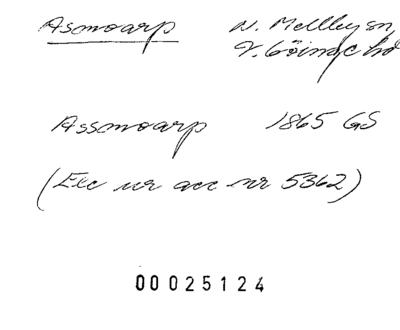 Asmoarp N. Mellby sn
V. Göinge hd
Assmoarp 1865 GS
(Exc ur acc nr 5362)
00025124